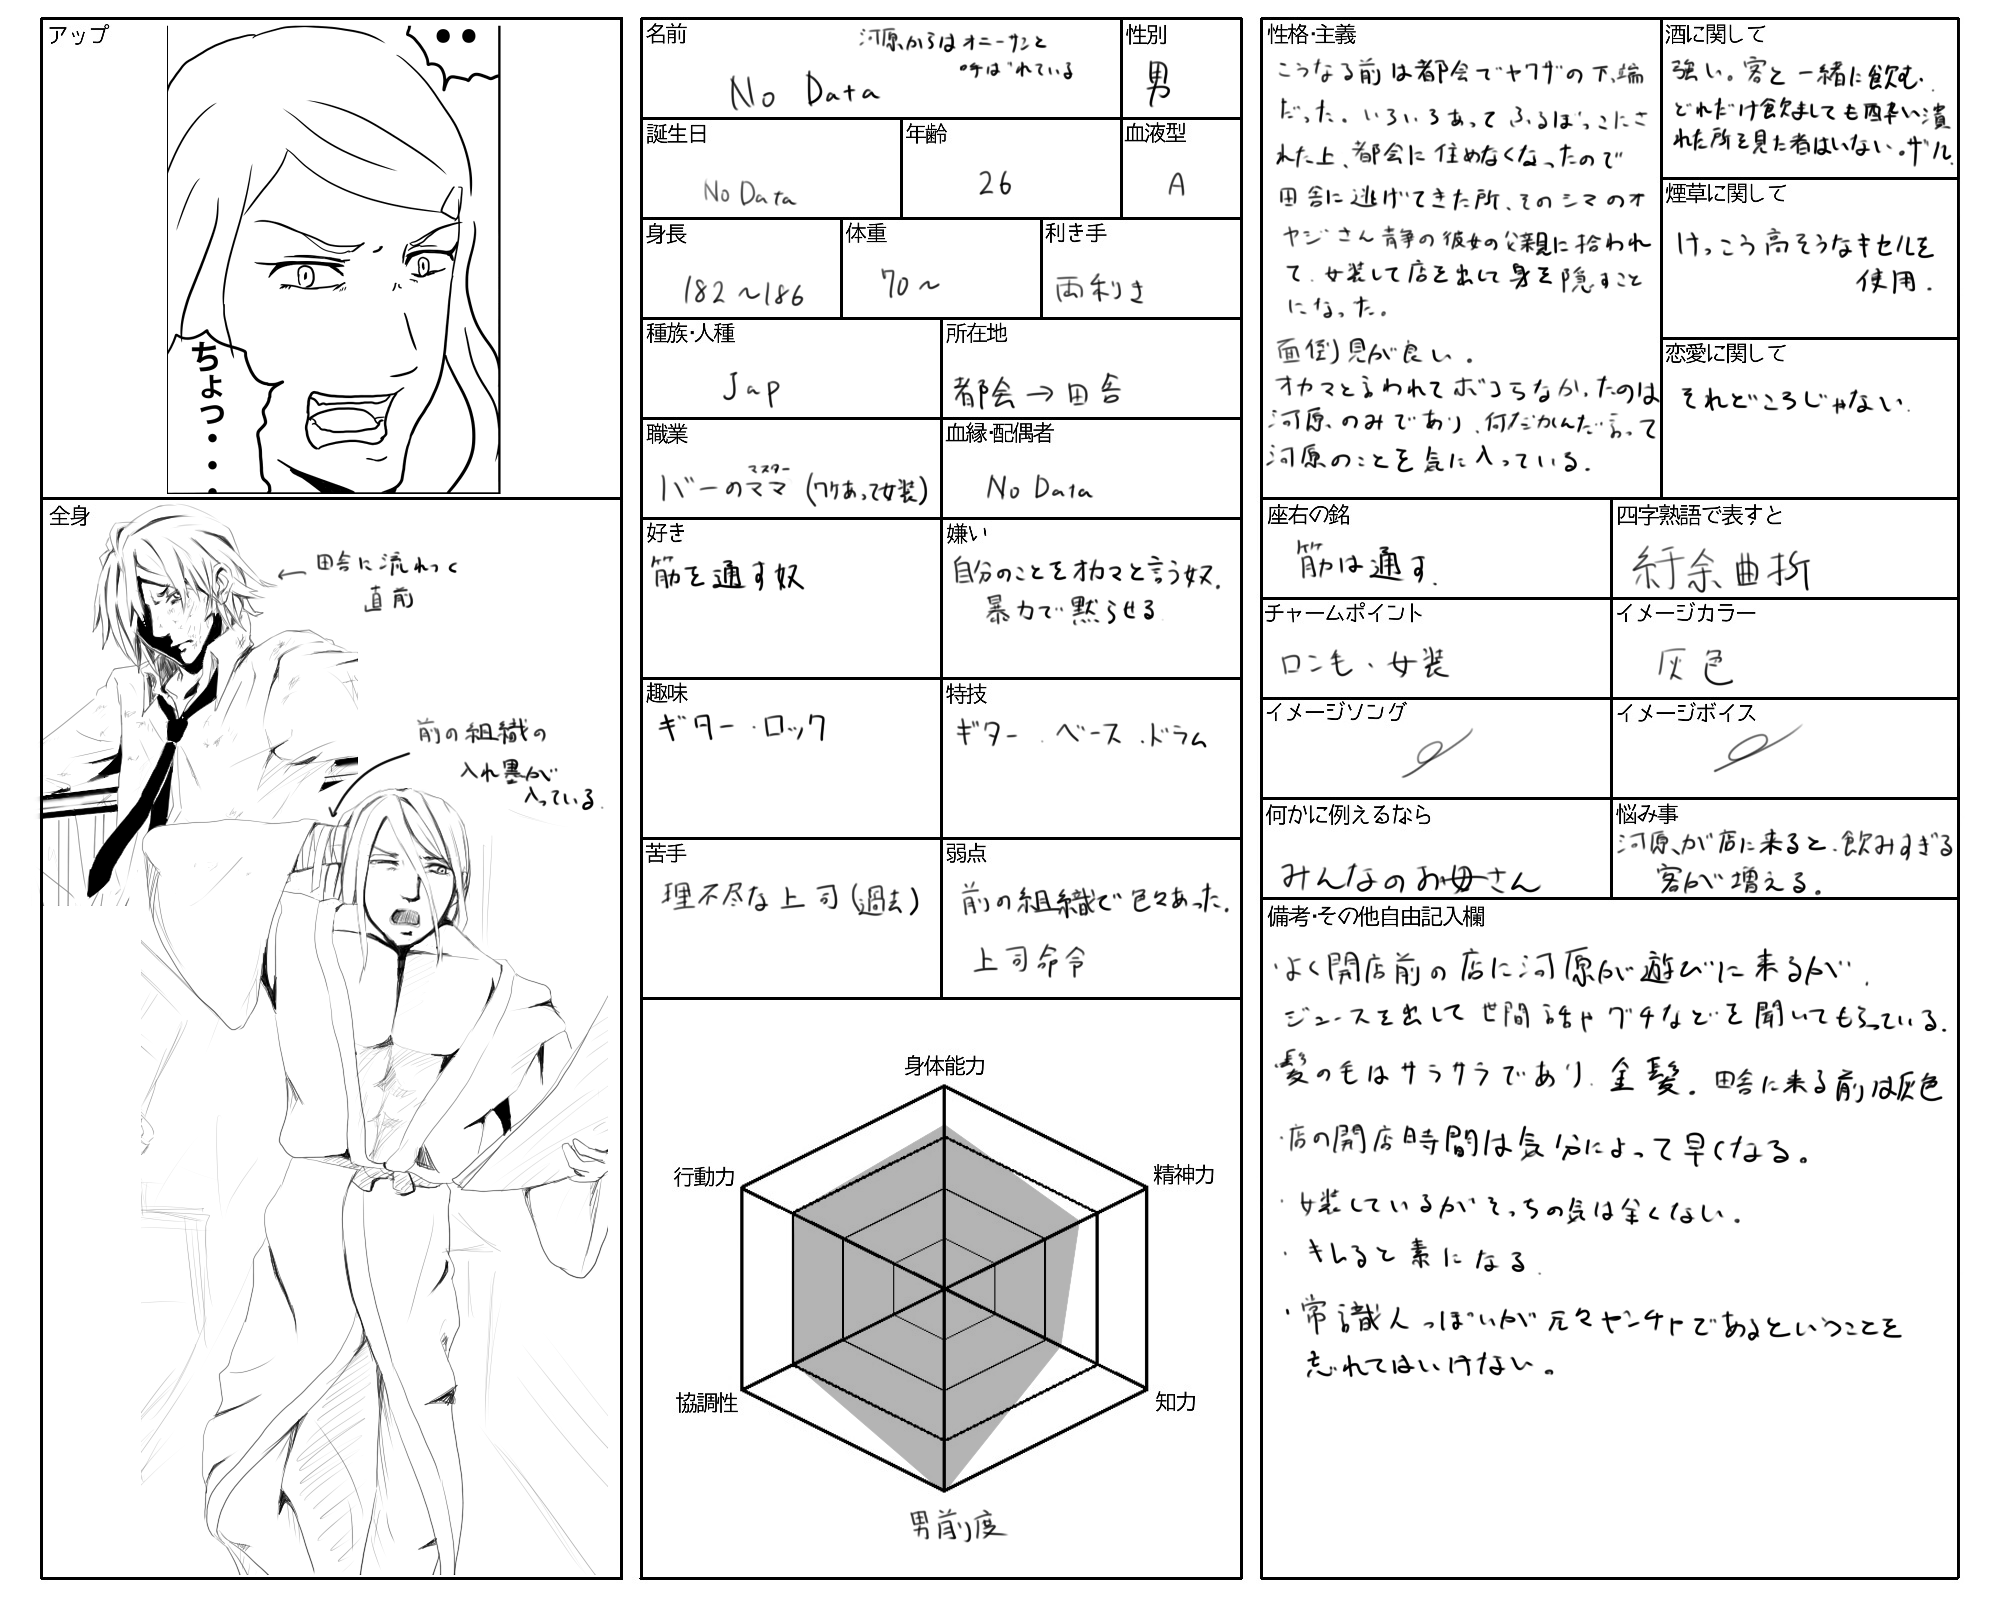 アップ
・・
ちょっ・・・
全身
←田舎に流れつく
直前
前の組織の
入れ墨が
入っている.
名前
河原からはオニーサンと
呼ばれている
No Data
性別
男
誕生日
No Data
年齢
26
血液型
A
身長
182～186
体重
70～
利き手
両利き
種族・人種
Jap
所在地
都会→田舎
職業
マスター
バーのママ(ワケあって女装)
血縁・配偶者
No Data
好き
筋を通す奴
嫌い
自分のことをオカマと言う奴.
暴力で黙らせる
趣味
ギター・ロック
特技
ギター・ベース・ドラム
苦手
理不尽な上司(過去)
弱点
前の組織で色々あった.
上司命令
身体能力
行動力
精神力
協調性
知力
男前度
性格・主義
こうなる前は都会でヤクザの下端
だった。いろいろあってふるぼっこにさ
れた上、都会に住めなくなったので
田舎に逃げてきた所、そのシマのオ
ヤジさん静の彼女の父親に拾われ
て、女装して店を出して身を隠すこと
になった。
面倒見が良い。
オカマと言われてボコらなかったのは
河原のみであり、何だかんだ言って
河原のことを気に入っている.
酒に関して
強い。客と一緒に飲む.
どれだけ飲ましても酔い潰
れた所を見た者はいない。ザル.
煙草に関して
けっこう高そうなキセルを
使用.
恋愛に関して
それどころじゃない.
座右の銘
筋は通す.
四字熟語で表すと
紆余曲折
チャームポイント
ロン毛・女装
イメージカラー
灰色
イメージソング
イメージボイス
何かに例えるなら
みんなのお母さん
悩み事
河原が店に来ると、飲みすぎる
客が増える.
備考・その他自由記入欄
・よく開店前の店に河原が遊びに来るが、
ジュースを出して世間話やグチなどを聞いてもらっている.
・髪の毛はサラサラであり、金髪。田舎に来る前は灰色
・店の開店時間は気分によって早くなる。
・女装しているがそっちの気は全くない.
・キレると素になる.
・常識人っぽいが元々ヤンチャであるということを
忘れてはいけない。